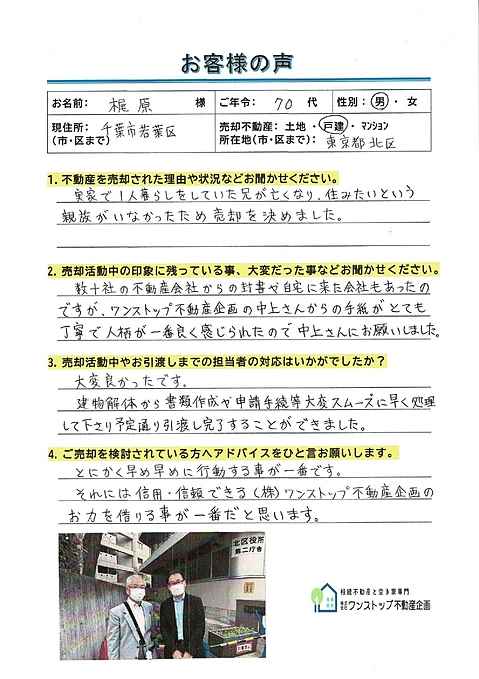 お客様の声
お名前: 梶原 様 ご年令: 70 代 性別: 男・女
現住所: 千葉市若葉区 売却不動産: 土地・戸建・マンション
(市・区まで) 所在地(市・区まで): 東京都北区
1. 不動産を売却された理由や状況などお聞かせください。
実家で1人暮らしをしていた兄が亡くなり、住みたいという
親族がいなかったため売却を決めました。
2. 売却活動中の印象に残っている事、大変だった事などお聞かせください。
数十社の不動産会社からの封書や自宅に来た会社もあったの
ですが、ワンストップ不動産企画の中上さんからの手紙がとても
丁寧で人柄が一番良く感じられたので中上さんにお願いしました。
3. 売却活動中やお引渡しまでの担当者の対応はいかがでしたか?
大変良かったです。
建物解体から書類作成や申請手続等大変スムーズに早く処理
して下さり予定通り引渡し完了することができました。
4. ご売却を検討されている方へアドバイスをひと言お願いします。
とにかく早め早めに行動する事が一番です。
それには信用・信頼できる(株)ワンストップ不動産企画の
お力を借りる事が一番だと思います。
北区役所
第二庁舎
相続不動産と空き家専門
株式会社ワンストップ不動産企画